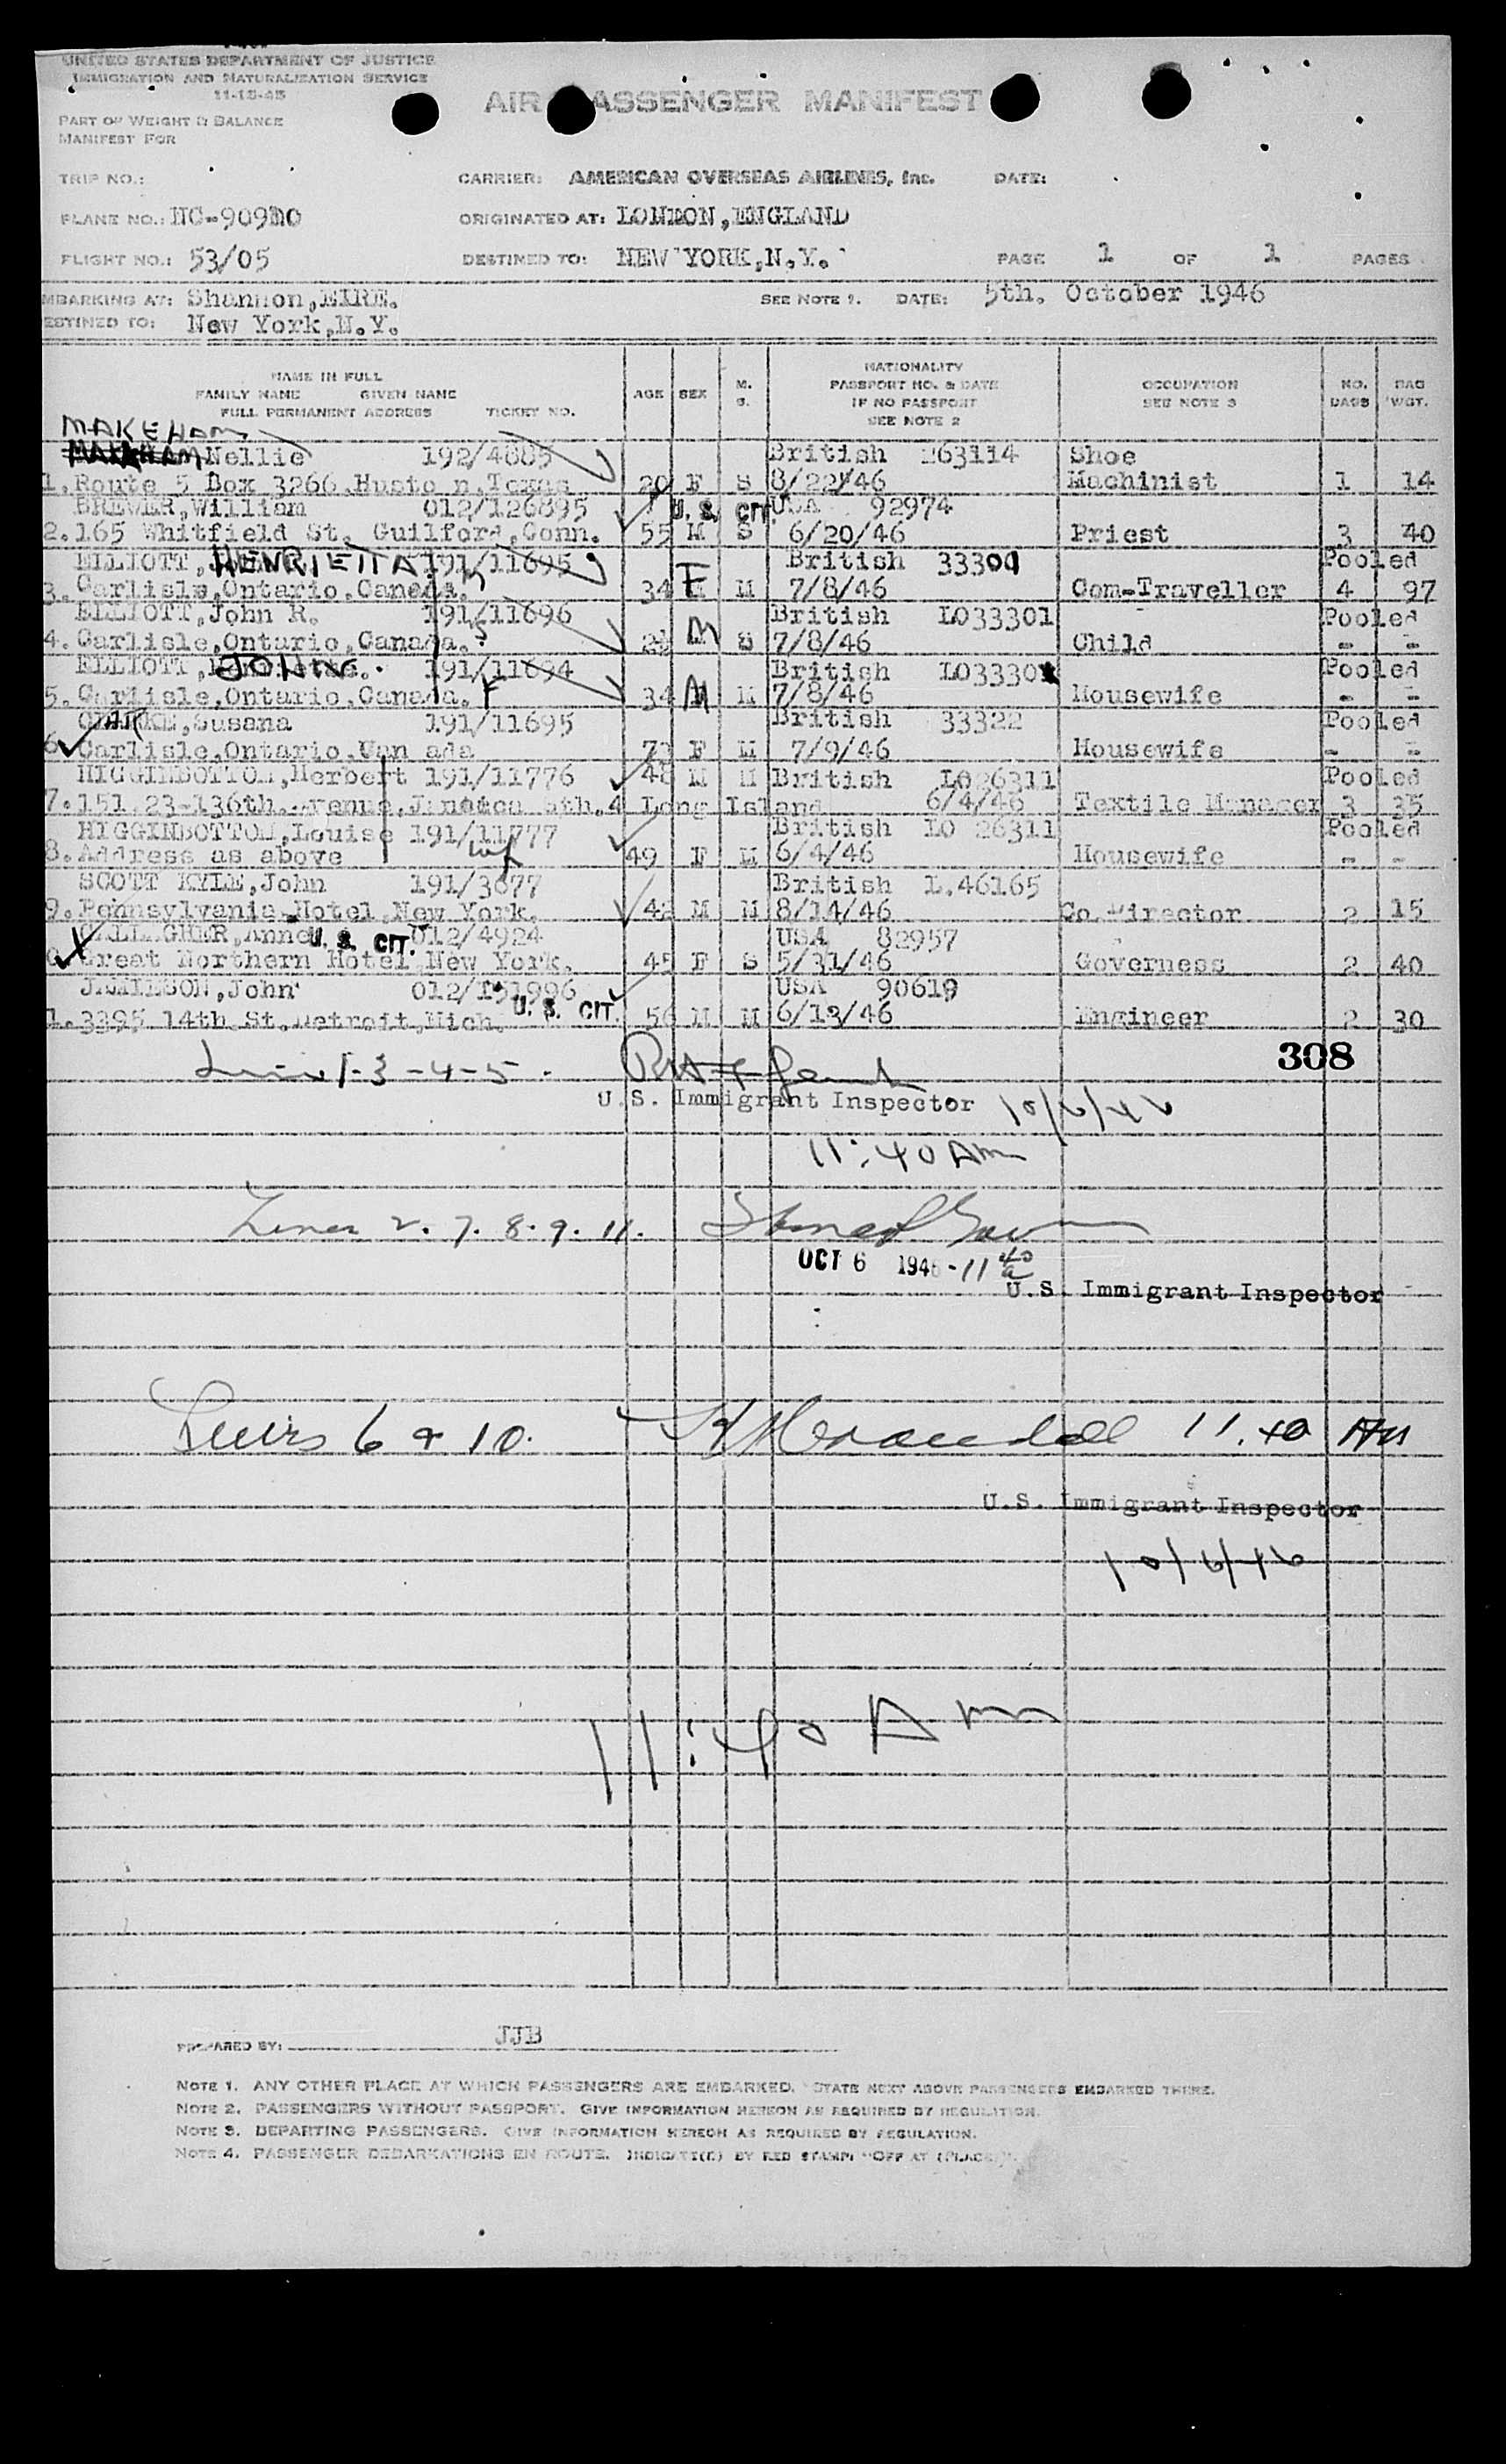 UNITED STATES DEPARTMENT OF JUSTICE
IMMIGRATION AND NATURALIZATION SERVICE
11-15-45
AIR PASSENGER MANIFEST
PART OF WEIGHT & BALANCE
MANIFEST FOR
TRIP NO.: CARRIER: AMERICAN OVERSEAS AIRLINES, Inc. DATE:
PLANE NO.: NC-90910 ORIGINATED AT: LONDON,ENGLAND
FLIGHT NO.: 53/05 DESTINED TO: NEW YORK,N.Y. PAGE 1 OF 1 PAGES
MBARKING AT: Shannon,EIRE. SEE NOTE 1. DATE: 5th. October 1946
ESTINED TO: New York,N.Y.
NAME IN FULL
FAMILY NAME GIVEN NAME
FULL PERMANENT ADDRESS TICKET NO.
AGE SEX M. S.
NATIONALITY
PASSPORT NO. & DATE
IF NO PASSPORT
SEE NOTE 2
OCCUPATION
SEE NOTE 3
NO. BAGS
BAG WGT.
MAKEHAM
Nellie 192/4885 British 263114 Shoe
1. Route 5 Box 3266,Husto n,Texas 20 F S 8/22/46 Machinist 1 14
BREWER,William 012/126895 U. S. CIT. USA 92974
2. 165 Whitfield St. Guilford,Conn. 55 M S 6/20/46 Priest 3 40
ELLIOTT, HENRIETTA 191/11695 British 33300 Pooled
3. Carlisle,Ontario,Canada. 34 F M 7/8/46 Com-Traveller 4 97
ELLIOTT,John R. 191/11696 British LO33301 Pooled
4. Carlisle,Ontario,Canada. M S 7/8/46 Child - -
ELLIOTT, JOHN G. 191/11694 British Pooled
5. Carlisle,Ontario,Canada. F 34 M M 7/8/46 Housewife - -
CLARKE,Susana 191/11695 British 33322 Pooled
6 Carlisle,Ontario,Can ada F M 7/9/46 Housewife - -
HIGGINBOTTOM,Herbert 191/11776 48 M M British LO26311 Pooled
7. 151.23-136th. Avenue,Jamaica 4 Long Island 6/4/46 Textile Manager 3 35
HIGGINBOTTOM,Louise 191/11777 British LO 26311 Pooled
8. Address as above wf 49 F M 6/4/46 Housewife - -
SCOTT KYLE,John 191/3677 British L.46165
9. Pennsylvania Hotel,New York. 42 M M 8/14/46 Co.Director 2 15
GALLAGHER,Anne U. S. CIT. 012/4924 USA 82957
Great Northern Hotel,New York. 45 F S 5/31/46 Governess 2 40
JAMIESON,John 012/151996 USA 90619
1. 3395 14th.St.Detroit,Mich. U. S. CIT. 56 M M 6/13/46 Engineer 2 30
308
1-3-4-5.
U.S. Immigrant Inspector 10/6/46
11:40 AM
Lines 2. 7. 8. 9. 11.
OCT 6 1946 - 11 40 a
U.S. Immigrant Inspector
Lines 6 & 10. 11.40 AM
U.S. Immigrant Inspector
10/6/46
11:40 AM
PREPARED BY: JJB
NOTE 1. ANY OTHER PLACE AT WHICH PASSENGERS ARE EMBARKED. STATE NEXT ABOVE PASSENGERS EMBARKED THERE.
NOTE 2. PASSENGERS WITHOUT PASSPORT. GIVE INFORMATION HEREON AS REQUIRED BY REGULATION.
NOTE 3. DEPARTING PASSENGERS. GIVE INFORMATION HEREON AS REQUIRED BY REGULATION.
NOTE 4. PASSENGER DEBARKATIONS EN ROUTE. INDICATE(D) BY RED STAMP: "OFF AT (PLACE)".